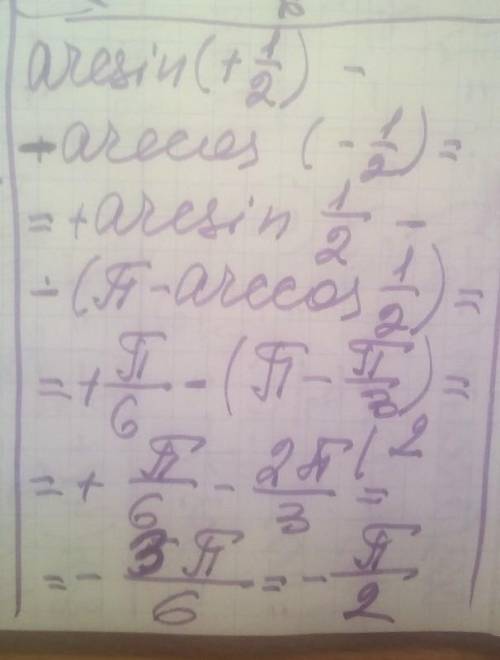 arcsin(+1/2) -
- arccos (-1/2) =
= +arcsin 1/2 -
- (π - arccos 1/2) =
= +π/6 - (π - π/3) =
= + π/6 - 2π/3 (2 =
= - 3π/6 = - π/2